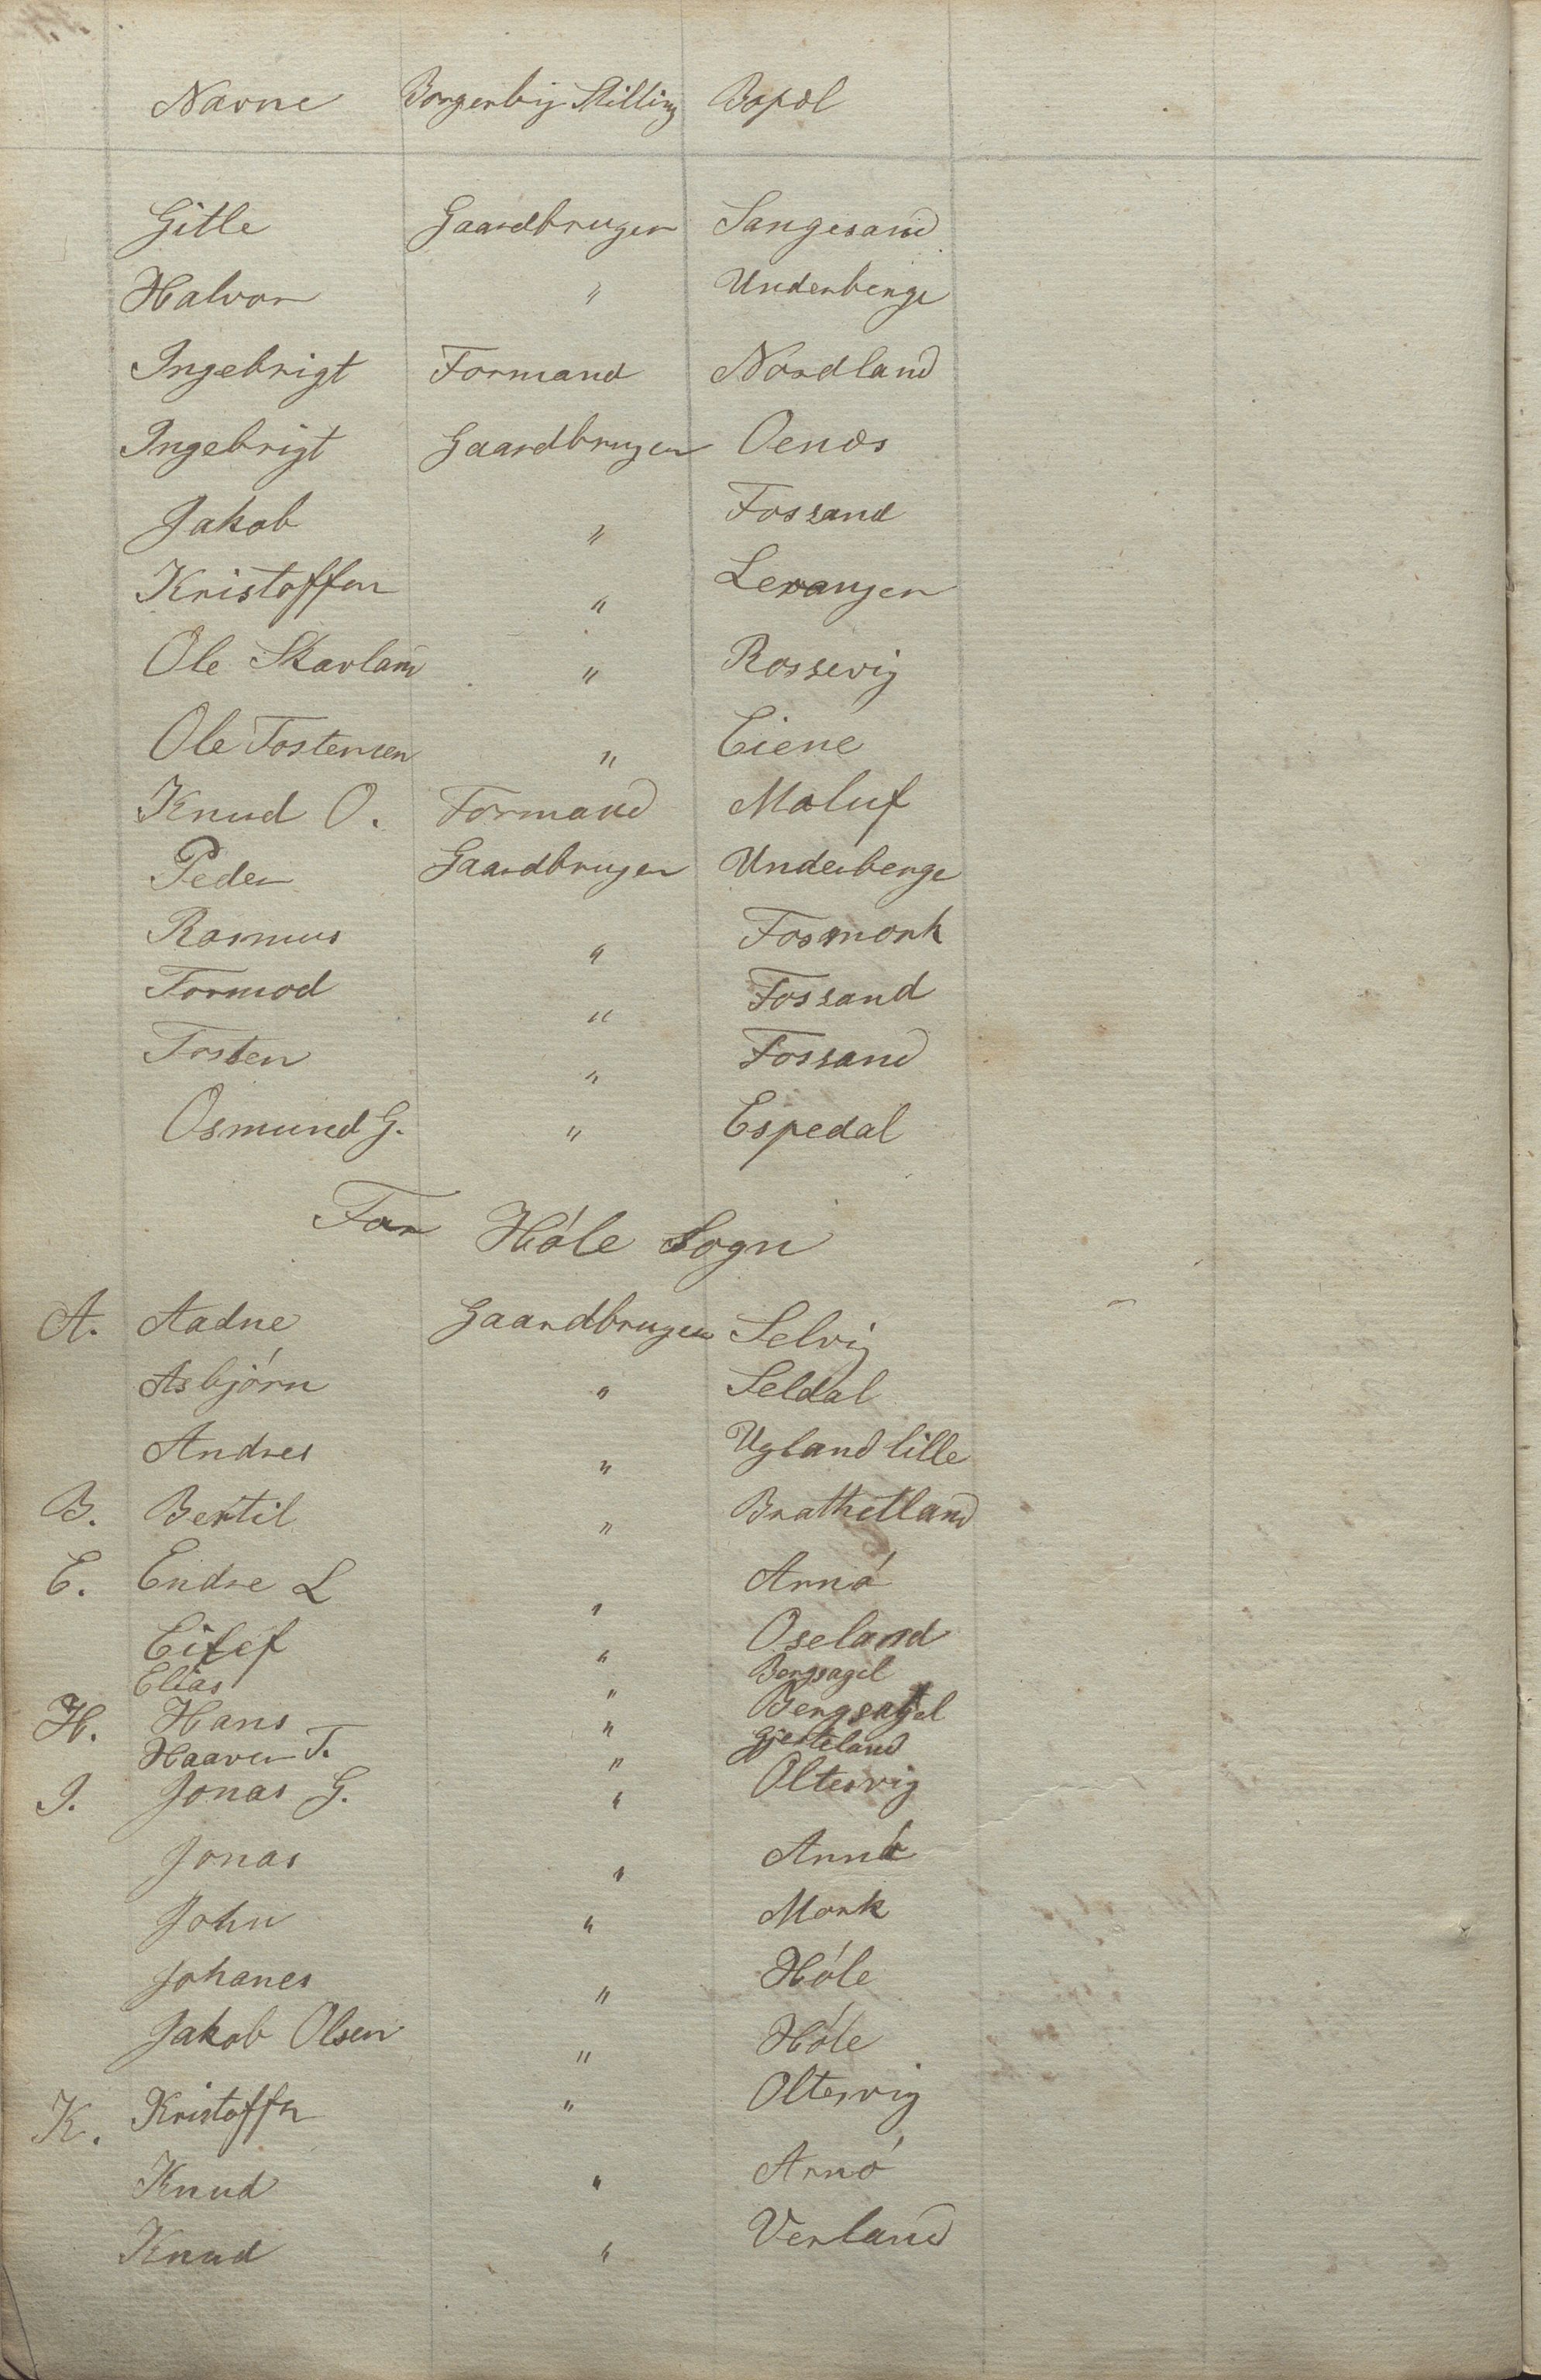 Navne Borgerlig Stilling Bopæl
Gitle Gaardbruger Sangesand
Halvor " Underberge
Ingebrigt Formand Nordland
Ingebrigt Gaardbruger Oenæs
Jakob " Fossand
Kristoffer " Levanger
Ole Skavland " Rossevig
Ole Tostensen " Eiene
Knud O. Formand Maluf
Peder Gaardbruger Underberge
Rasmus " Fosmork
Tormod " Fossand
Tosten " Fossand
Osmund G. " Espedal
For Hóle Sogn
A. Aadne Gaardbruger Selvig
Asbjórn " Seldal
Andres " Ugland lille
B. Bertil " Brathetland
E. Endre L " Arnó
Eilef " Oseland
Elias " Bergsagel
H. Hans " Bergsagel
Haaver T. " Gjesteland
J. Jonas G. " Oltesvig
Jonas " Arnó
John " Mork
Johanes " Hóle
Jakob Olsen " Hóle
K. Kristoffer " Oltesvig
Knud " Arnó
Knud " Verland